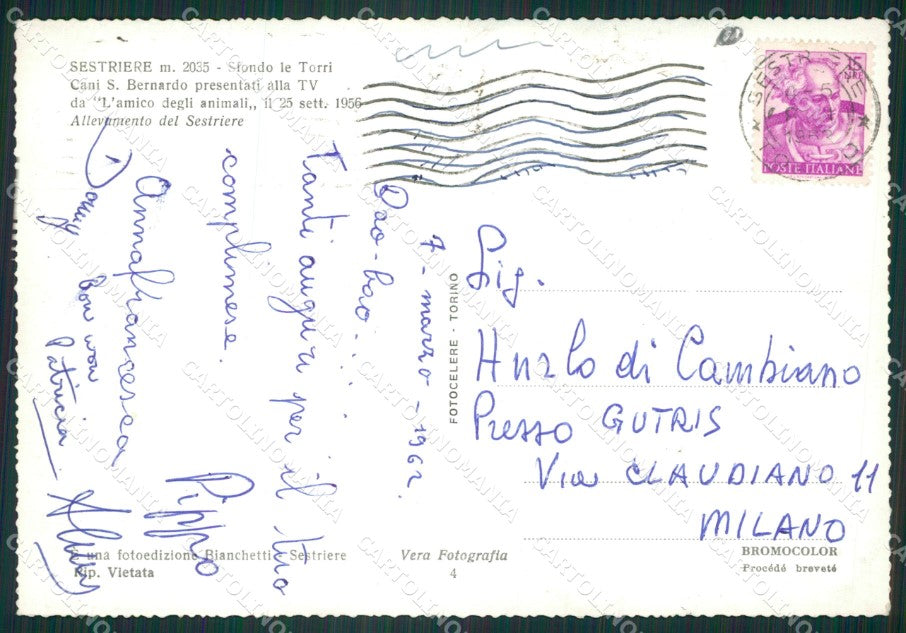 SESTRIERE m. 2035 - Sfondo le Torri
Cani S. Bernardo presentati alla TV
da "L'amico degli animali,, il 25 sett. 1956
Allevamento del Sestriere
15
LIRE
POSTE ITALIANE
SESTRIERE
7 - marzo - 1962.
Bao-bao...
Tanti auguri per il tuo
complimese.
Annafrancesca Pippo
bau wau
Patricia
FOTOCELERE - TORINO
Sig.
Hurlo di Cambiano
Presso GUTRIS
Via CLAUDIANO 11
MILANO
È una fotoedizione Bianchetti - Sestriere
Rip. Vietata
Vera Fotografia
4
BROMOCOLOR
Procédé breveté
CARTOLINOMANIA